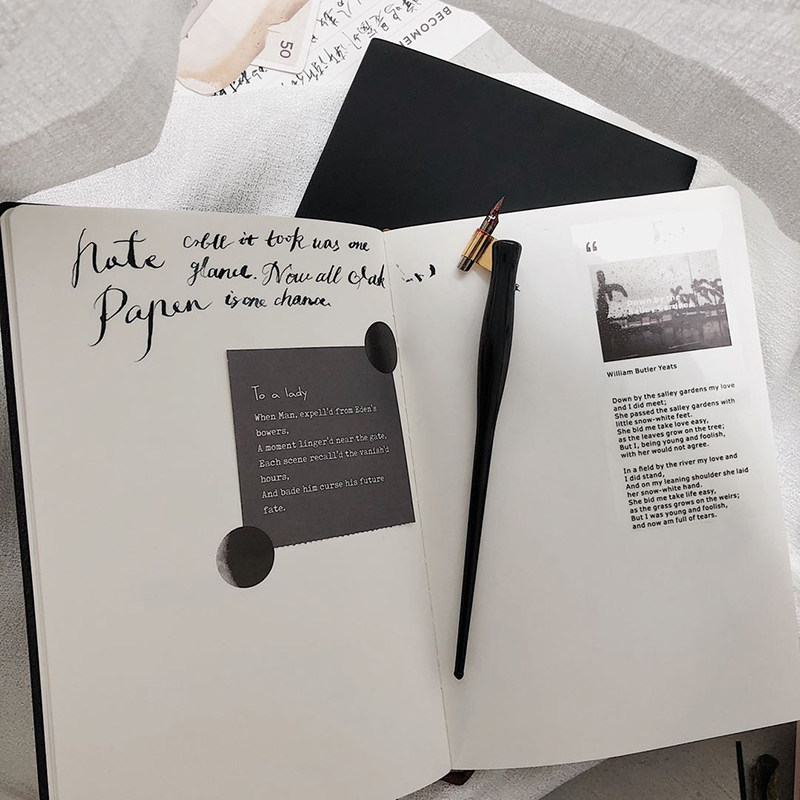 50
BECOME
Note
it took was one
glance. Now all
Papen
is one chance.
To a lady
When Man, expell'd from Eden's
bowers,
A moment linger'd near the gate,
Each scene recall'd the vanish'd
hours,
And bade him curse his future
fate.
“
Down by the
William Butler Yeats
Down by the salley gardens my love
and I did meet;
She passed the salley gardens with
little snow-white feet.
She bid me take love easy,
as the leaves grow on the tree;
But I, being young and foolish,
with her would not agree.
In a field by the river my love and
I did stand,
And on my leaning shoulder she laid
her snow-white hand.
She bid me take life easy,
as the grass grows on the weirs;
But I was young and foolish,
and now am full of tears.